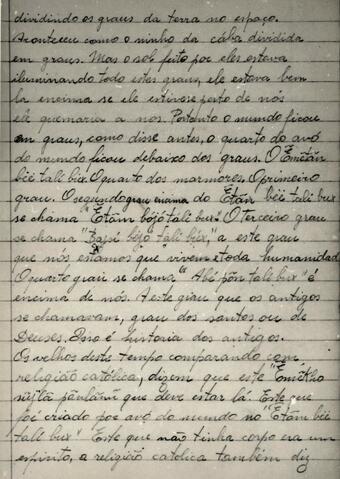 dividindo os graus da terra no espaço.
Aconteceu como o ninho da caba dividida
em graus. Mas o sol feito por eles estava
iluminando todo estes graus, ele estava bem
la encima se ele estivese perto de nós
ele quemaria a nos. Portanto o mundo ficou
em graus, como disse antes, o quarto do avó
do mundo ficou debaixo dos graus. O Ëmëtãn
bëë tali bux. O quarto dos marmores. O primeiro
grau. O segundo grau encima do Etãn bëë tali bux
se chama "Ëtãm bójó tali bux" O Terceiro grau
se chama "Bajsí bójó tali bux," a este grau
que nós estamos que vivem etoda humanidad
O quarto grau se chama "Abé põn tali bux" é
encima de nós. A este grau que os antigos
se chamavam, grau dos santos ou de
Deuses. Isso é historia dos antigos.
Os velhos deste tempo comparando com
religião católica, dizem que este "Emëkho
que deve estar lá. Este que
foi criado por avó do mundo no "Etãm bëë
tali bux" Este que não tinha corpo era um
espirito, a religião catolica também diz